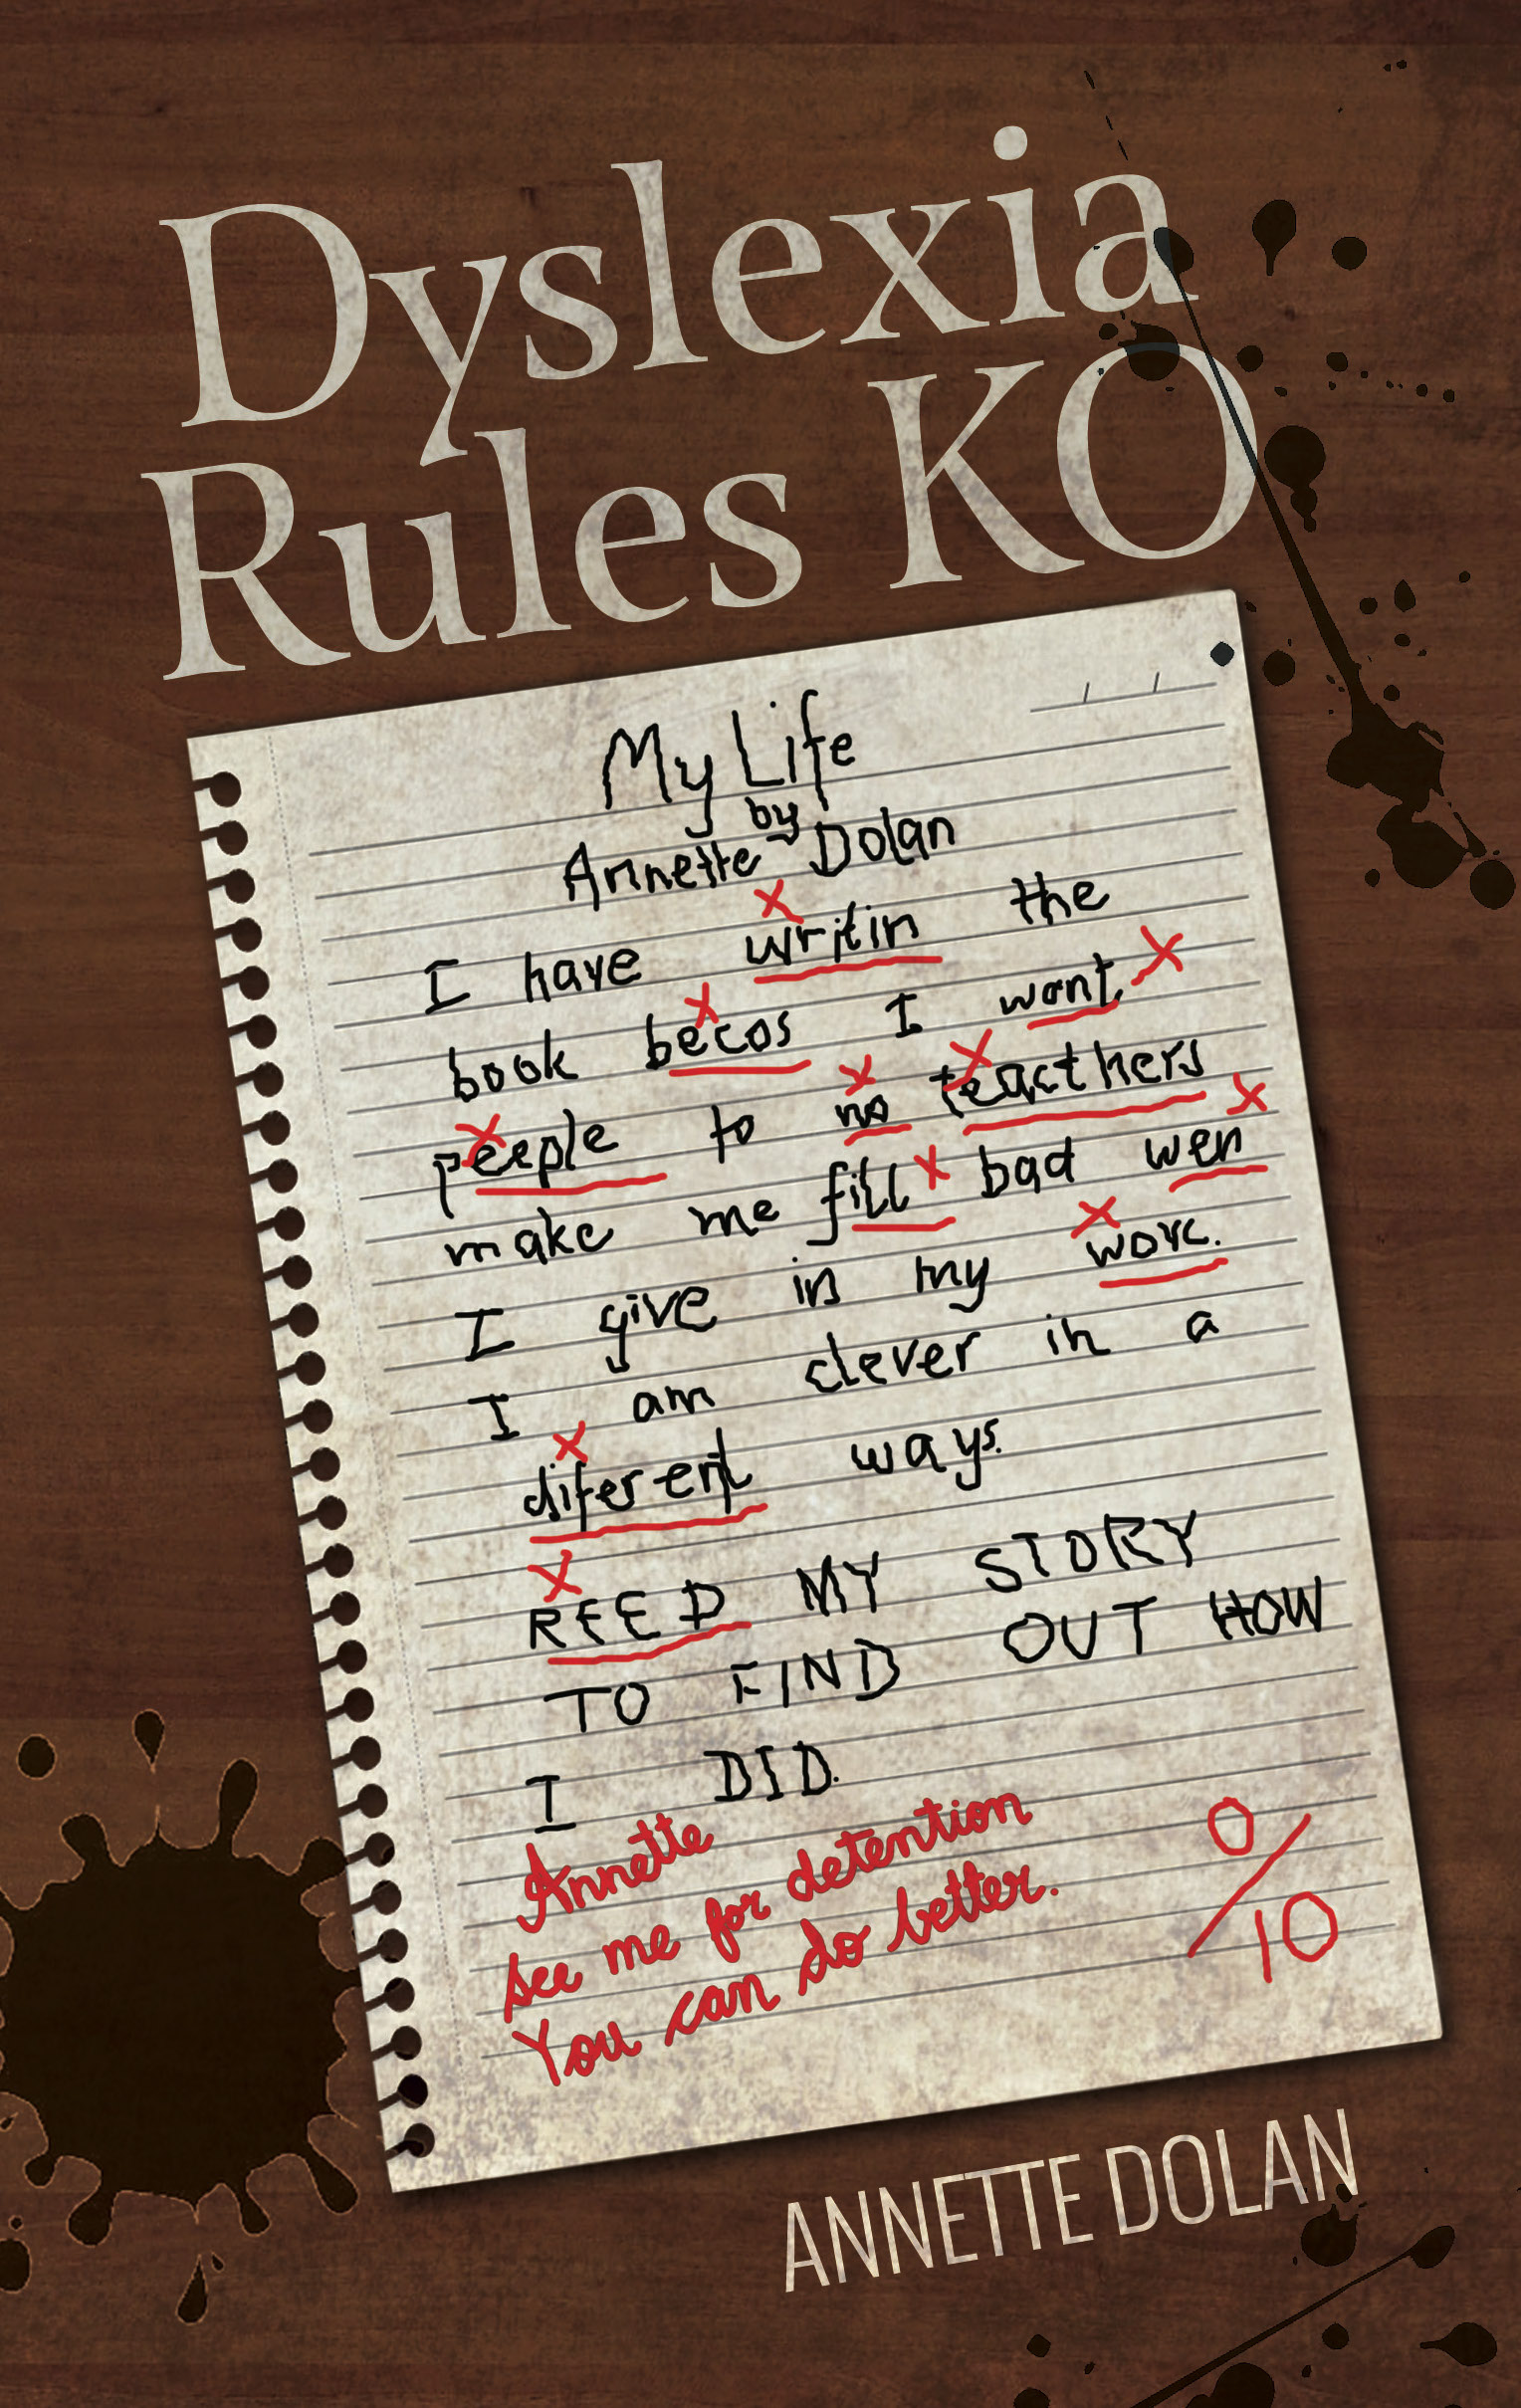 Dyslexia
Rules KO
My Life
by
Annette Dolan
I have writin the
book becos I wont
peeple to no teacthers
make me fill bad wen
I give in my worc.
I am clever in a
diferent ways.
REED MY STORY
TO FIND OUT HOW
I DID.
Annette
see me for detention
You can do better.
0/10
ANNETTE DOLAN